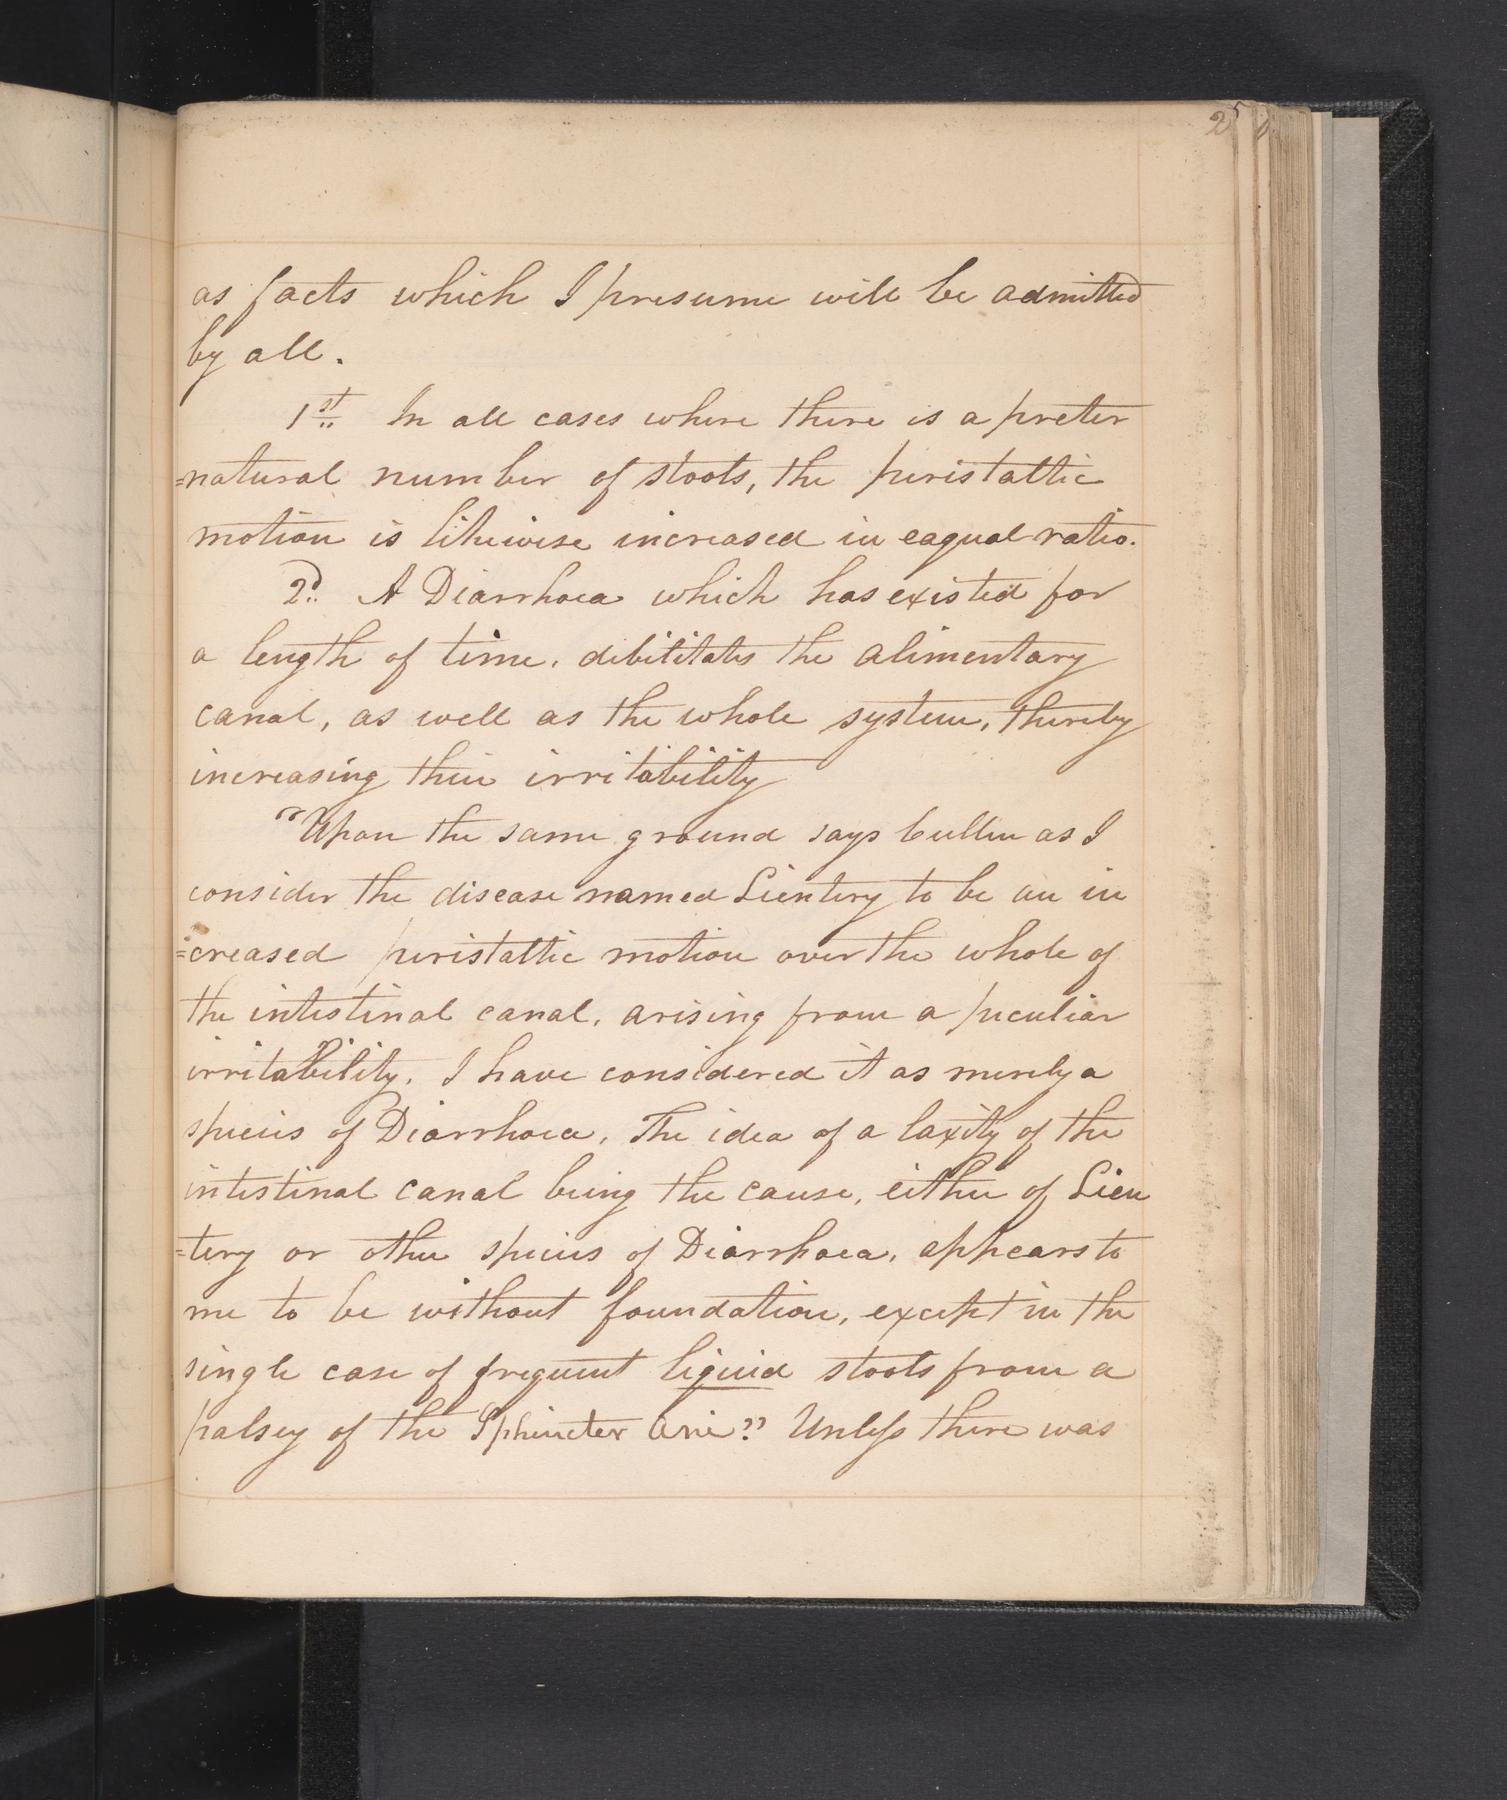 25
as facts which I presume will be admitted
by all.
1st In all cases where there is a preter
=natural number of stools, the peristaltic
motion is likewise increased in eaqual ratio.
2d A Diarrhoea which has existed for
a length of time, dibilitates the alimentary
canal, as well as the whole system, thereby
increasing their irritability
"Upon the same ground says Cullen as I
consider the disease named Lientery to be an in
=creased peristaltic motion over the whole of
the intestinal canal, arising from a peculiar
irritability, I have considered it as merely a
species of Diarrhoea, The idea of a laxity of the
intestinal canal being the cause, either of Lien
=tery or other species of Diarrhoea, appears to
me to be without foundation, except in the
single case of frequent liquid stools from a
palsey of the Sphincter Anie" Unless there was